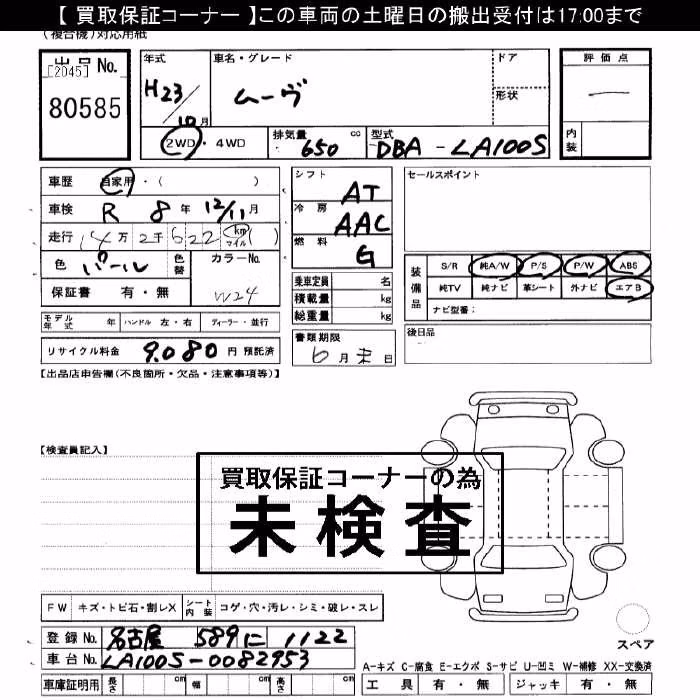 【 買取保証コーナー 】この車両の土曜日の搬出受付は17:00まで
(複合機)対応用紙
出品No.
[2045]
80585
年式
H23/10月
車名・グレード
ムーヴ
ドア
形状
評価点
内装
2WD・4WD
排気量 650 cc
型式 DBA-LA100S
車歴 自家用・( )
車検 R 8年 12/11月
走行 万 2千622 km マイル ( )
色 パール 色替
カラーNo. W24
保証書 有・無
シフト AT
冷房 AAC
燃料 G
乗車定員 名
積載量 kg
総重量 kg
セールスポイント
装備品
S/R 純A/W P/S P/W ABS
純TV 純ナビ 革シート 外ナビ エアB
ナビ型番:
モデル年式 年 ハンドル 左・右 ディーラー・並行
リサイクル料金 9,080 円 預託済
書類期限
6月末日
後日品
【出品店申告欄(不良箇所・欠品・注意事項等)】
【検査員記入】
買取保証コーナーの為
未検査
FW キズ・トビ石・割レX シート内装 コゲ・穴・汚レ・シミ・破レ・スレ
登録No. 名古屋 589 に 1122
車台No. LA100S-0082953
車庫証明用 長さ cm 幅 cm 高さ cm
スペア
A-キズ C-腐食 E-エクボ S-サビ U-凹ミ W-補修 XX-交換済
工具 有・無 ジャッキ 有・無